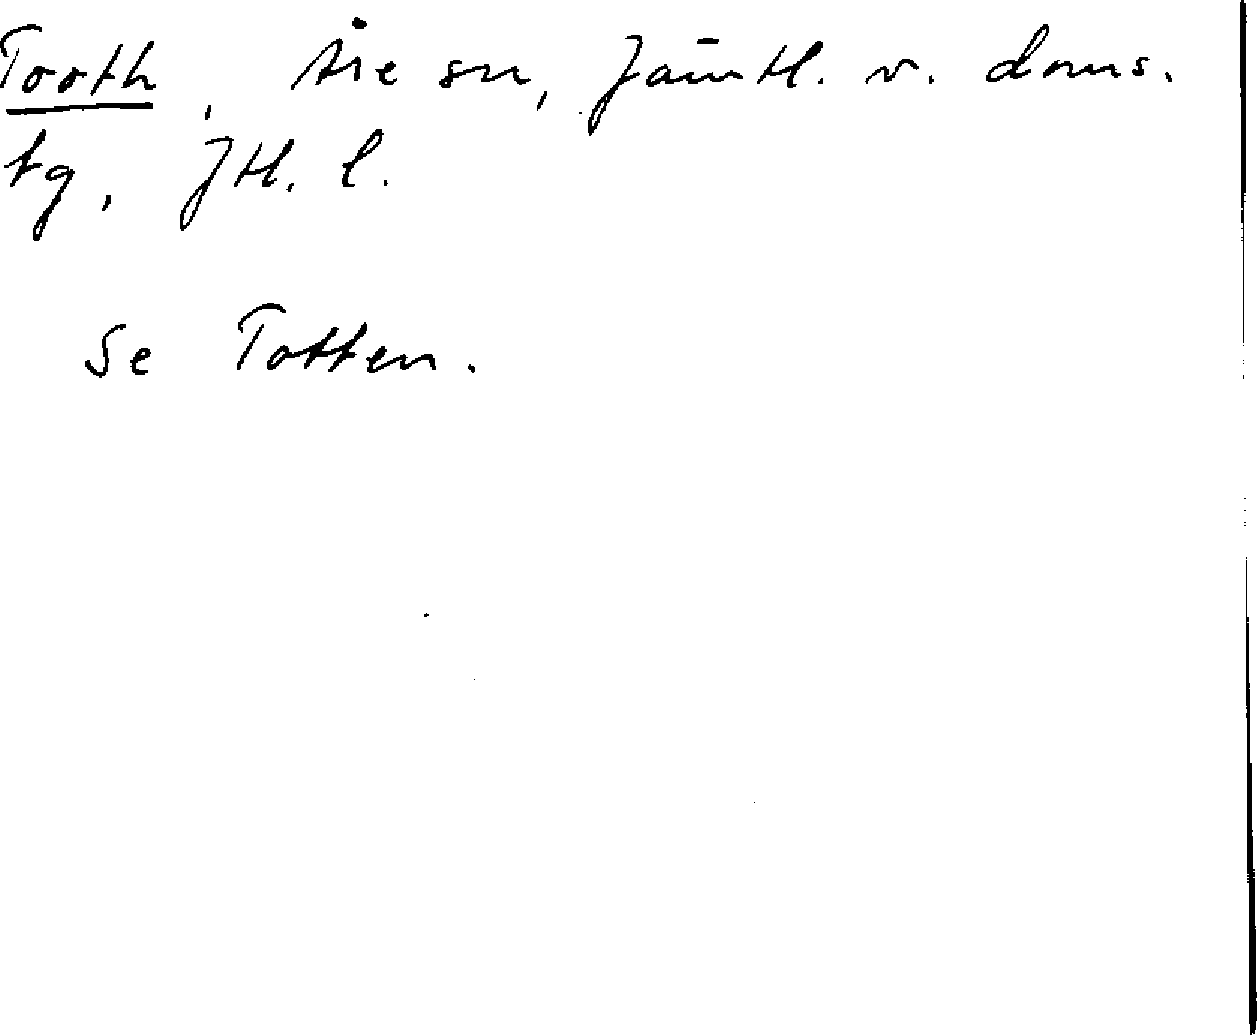 Tooth, Åre sn, Jämtl. v. doms.
tg, Jtl. l.
Se Totten.